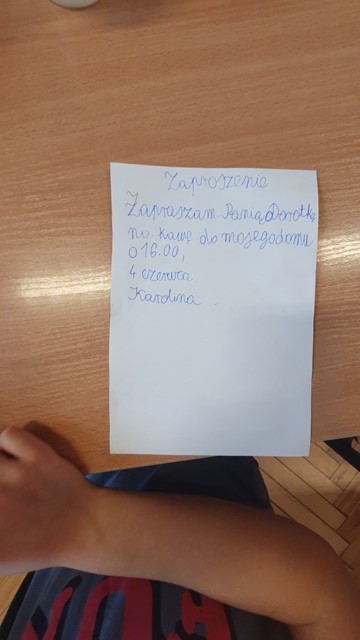 Zaproszenie
Zapraszam Panią Dorotkę
na kawę do mojego domu
o 16.00,
4 czerwca
Karolina